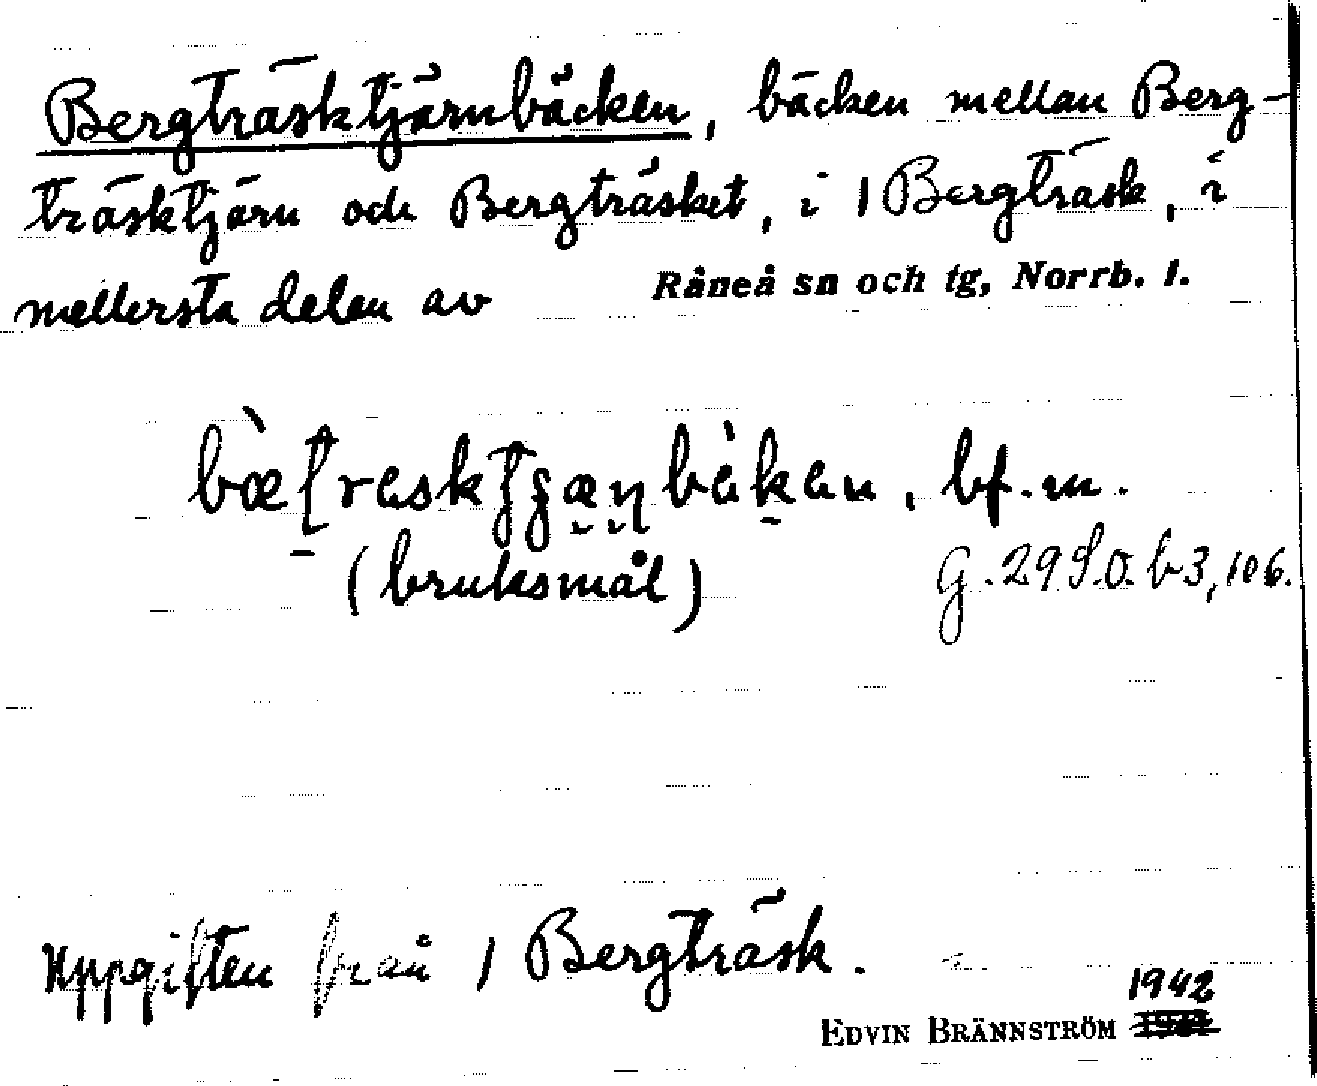 Bergträsktjärnbäcken, bäcken mellan Berg-
träsktjärn och Bergträsket, i 1 Bergträsk, i
mellersta delen av Råneå sn och tg, Norrb. l.
bf. m.
(bruksmål) G. 29 S.O. b 3, 106.
Uppgiften från 1 Bergträsk.
1942
EDVIN BRÄNNSTRÖM